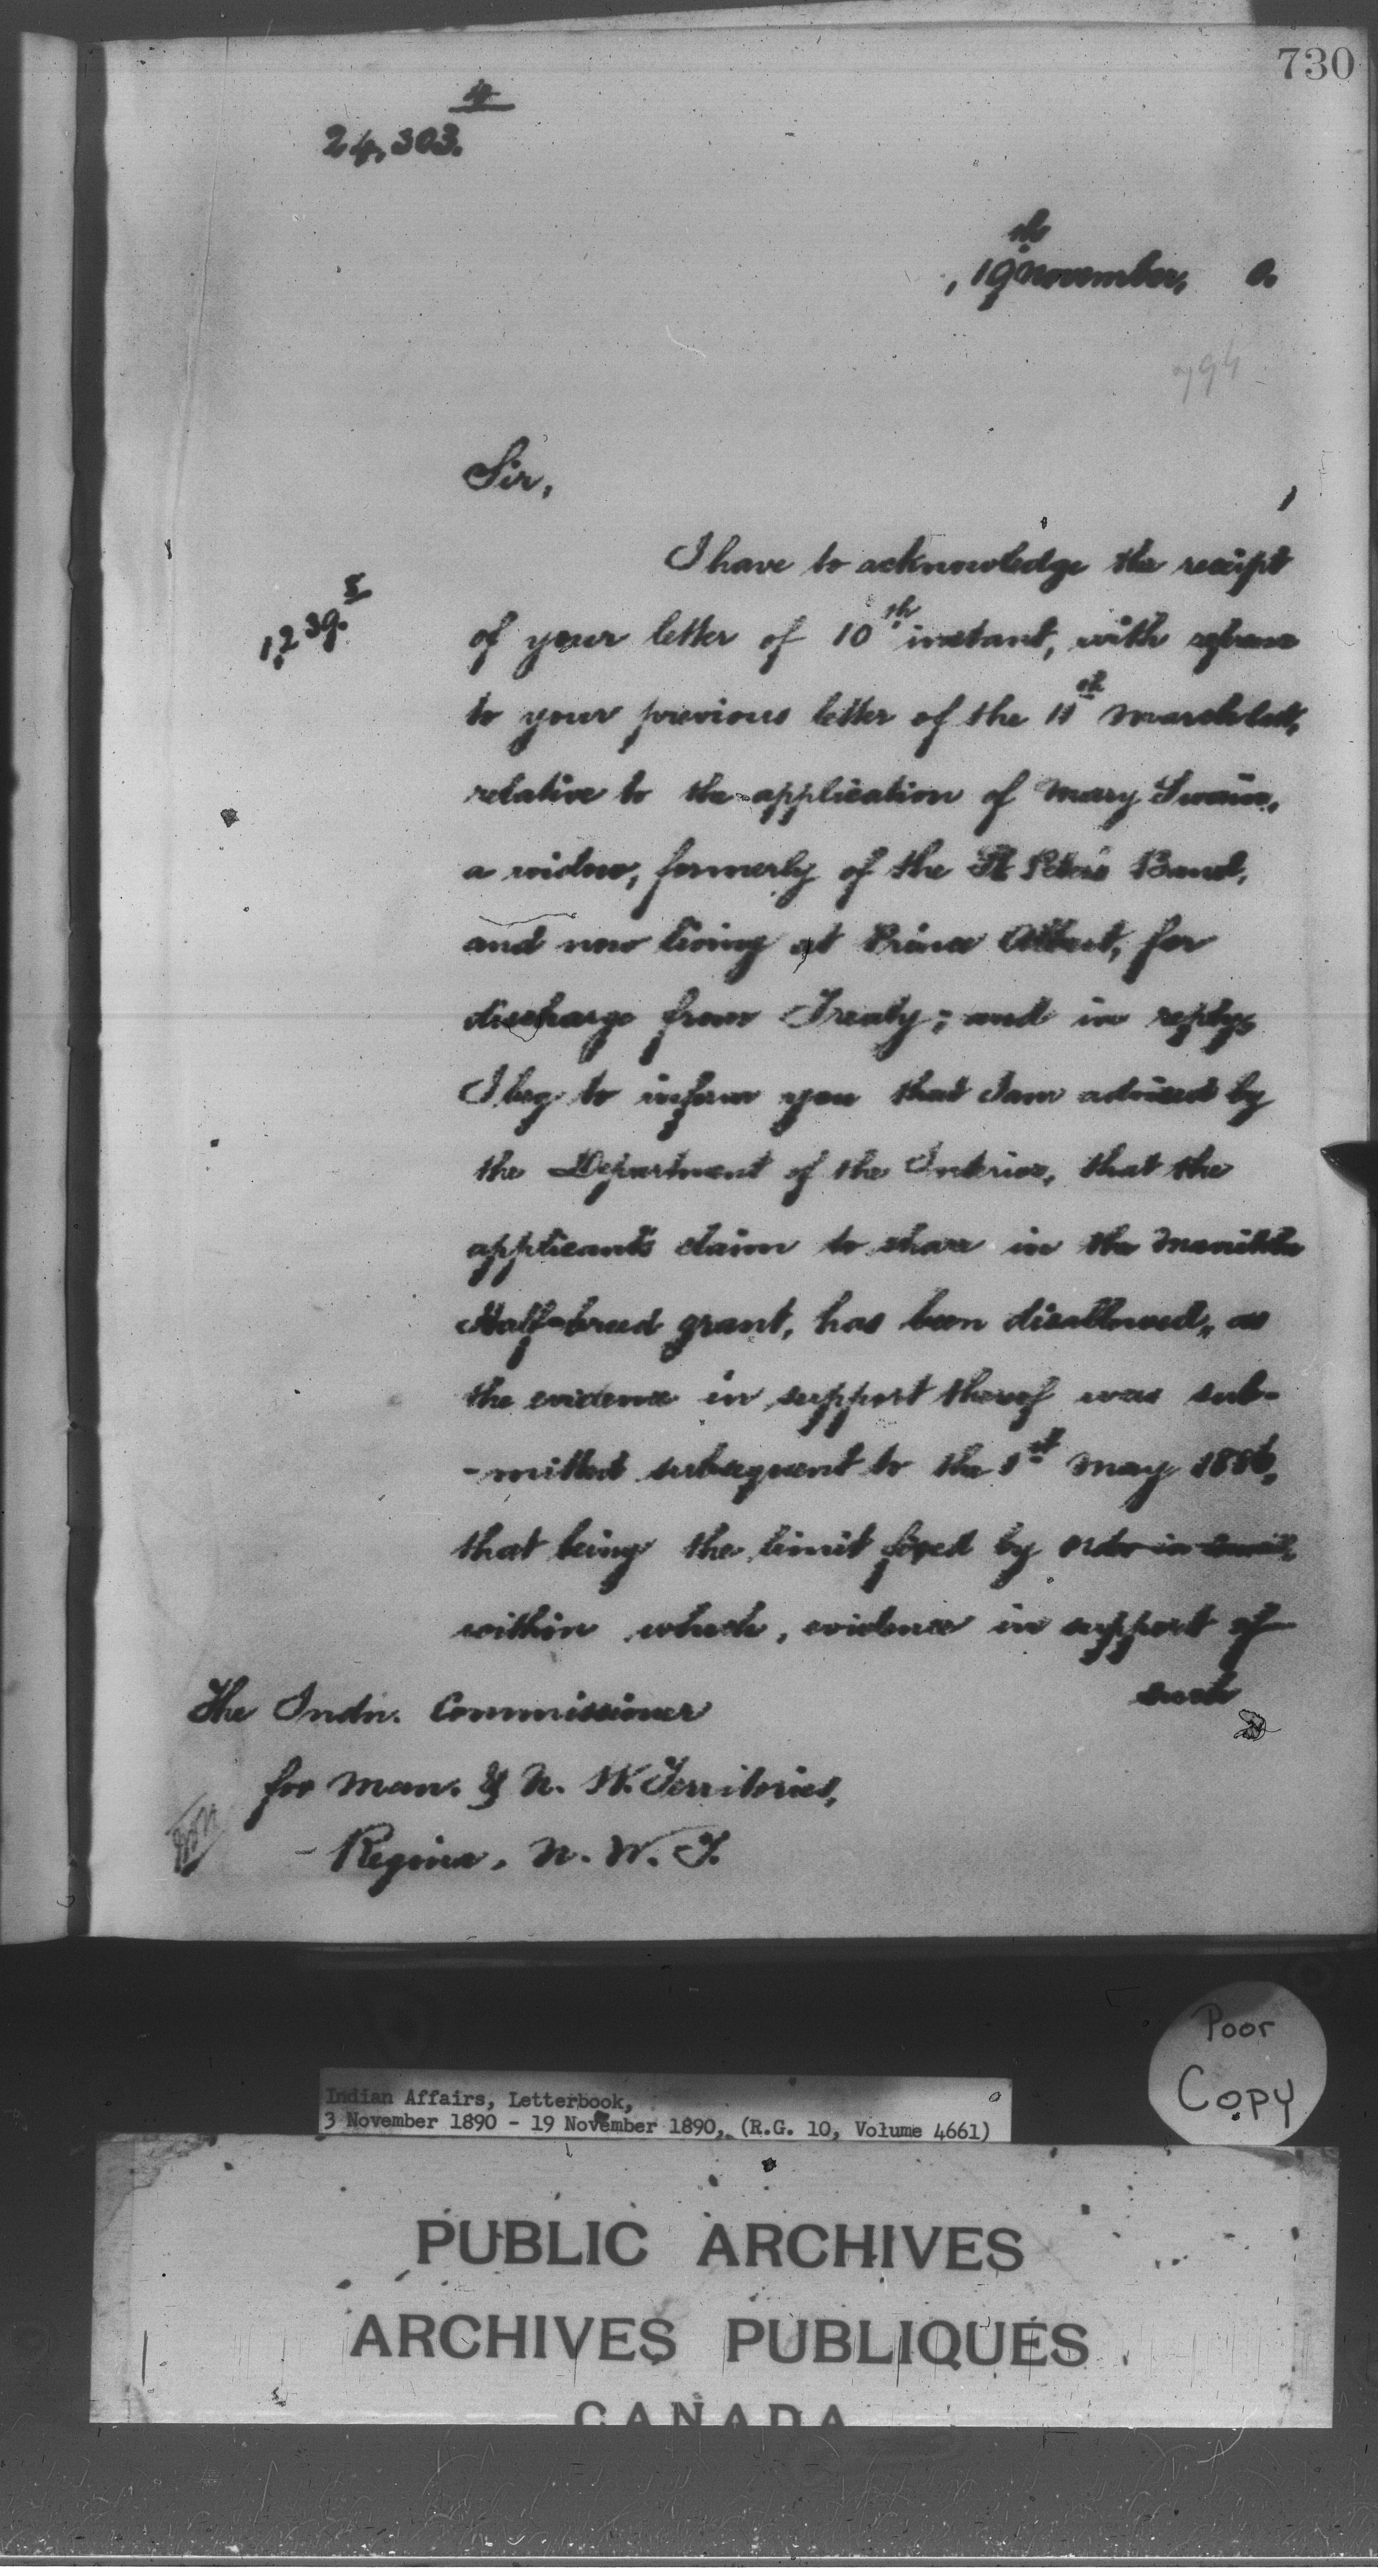 730
4
24,303.
19th November, 0.
Sir,
I have to acknowledge the receipt
1,239.5
of your letter of 10th instant, with reference
to your previous letter of the 11th March last,
relative to the application of Mary Swain,
a widow, formerly of the St Peter's Band,
and now living at Prince Albert, for
discharge from Treaty; and in reply,
I beg to inform you that I am advised by
the Department of the Interior, that the
applicant's claim to share in the Manitoba
Half-breed grant, has been disallowed, as
the evidence in support thereof was sub-
-mitted subsequent to the 1st May 1886,
that being the limit fixed by order in Council,
within which, evidence in support of
such
The Indn. Commissioner
for Man. & N. W. Territories,
Regina, N. W. T.
Poor
Copy
Indian Affairs, Letterbook,
3 November 1890 - 19 November 1890, (R.G. 10, Volume 4661)
PUBLIC ARCHIVES
ARCHIVES PUBLIQUES
CANADA